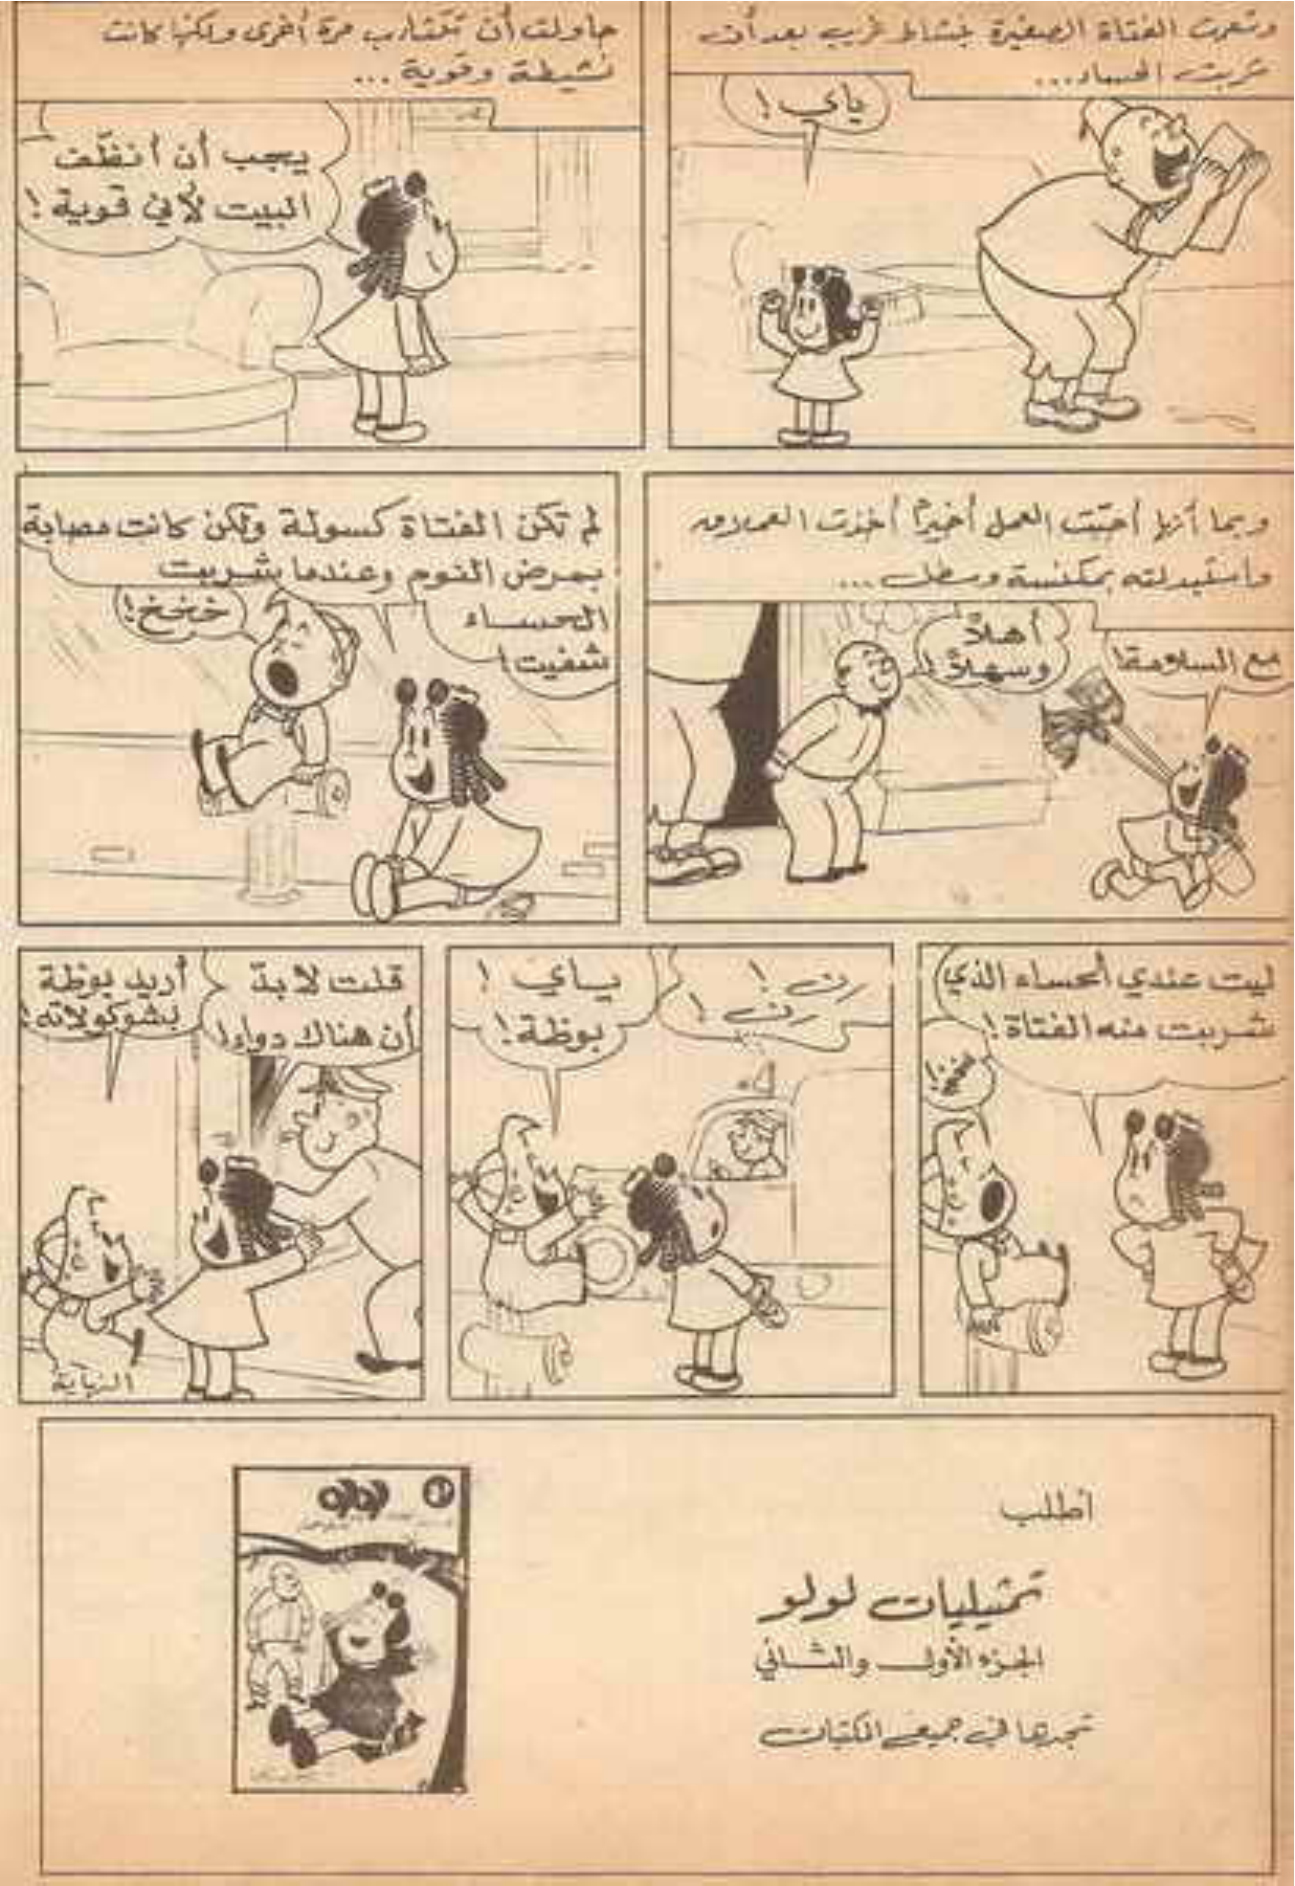 وشعرت الفتاة الصغيرة بنشاط غريب بعد أن
شربت الحساء...
ياي!
حاولت أن تتثاءب مرة أخرى ولكنها كانت
نشيطة وقوية ...
يجب أن أنظّف
البيت لأني قوية!
وبما أنها أحبّت العمل أخيراً أخذت العملاق
واستبدلته بمكنسة وسطل ...
أهلاً
وسهلاً!
مع السلامة!
لم تكن الفتاة كسولة ولكن كانت مصابة
بمرض النوم وعندما شربت
الحساء
شفيت!
خخخ!
ليت عندي الحساء الذي
شربت منه الفتاة!
رن!
رن!
ياي!
بوظة!
قلت لا بدّ
أن هناك دواء!
أريد بوظة
بشوكولاته!
النهاية
لولو
اطلب
تمثيليات لولو
الجزء الأول والثاني
تجدها في جميع المكتبات